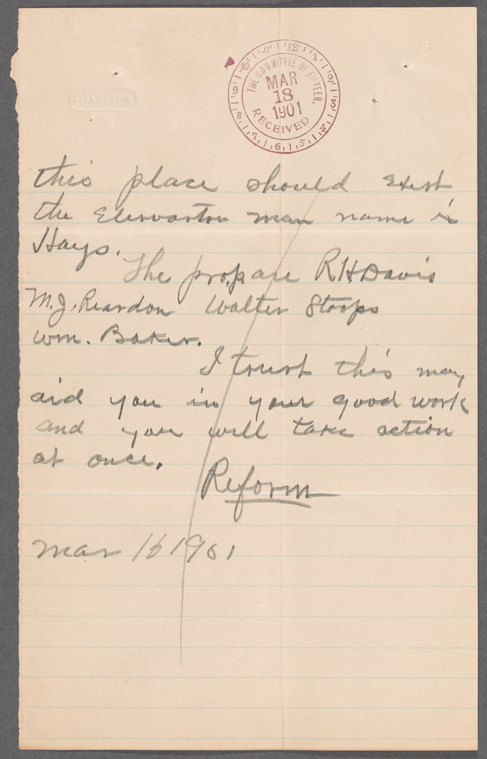 THE COMMITTEE OF FIFTEEN.
MAR
18
1901
RECEIVED
this place should exist
the Elevvarton man name is
Hays.
The prop are R H Davis
M. J. Reardon Walter Stoops
Wm. Baker.
I trust this may
aid you in your good work
and you will take action
at once.
Reform
Mar 16 1901